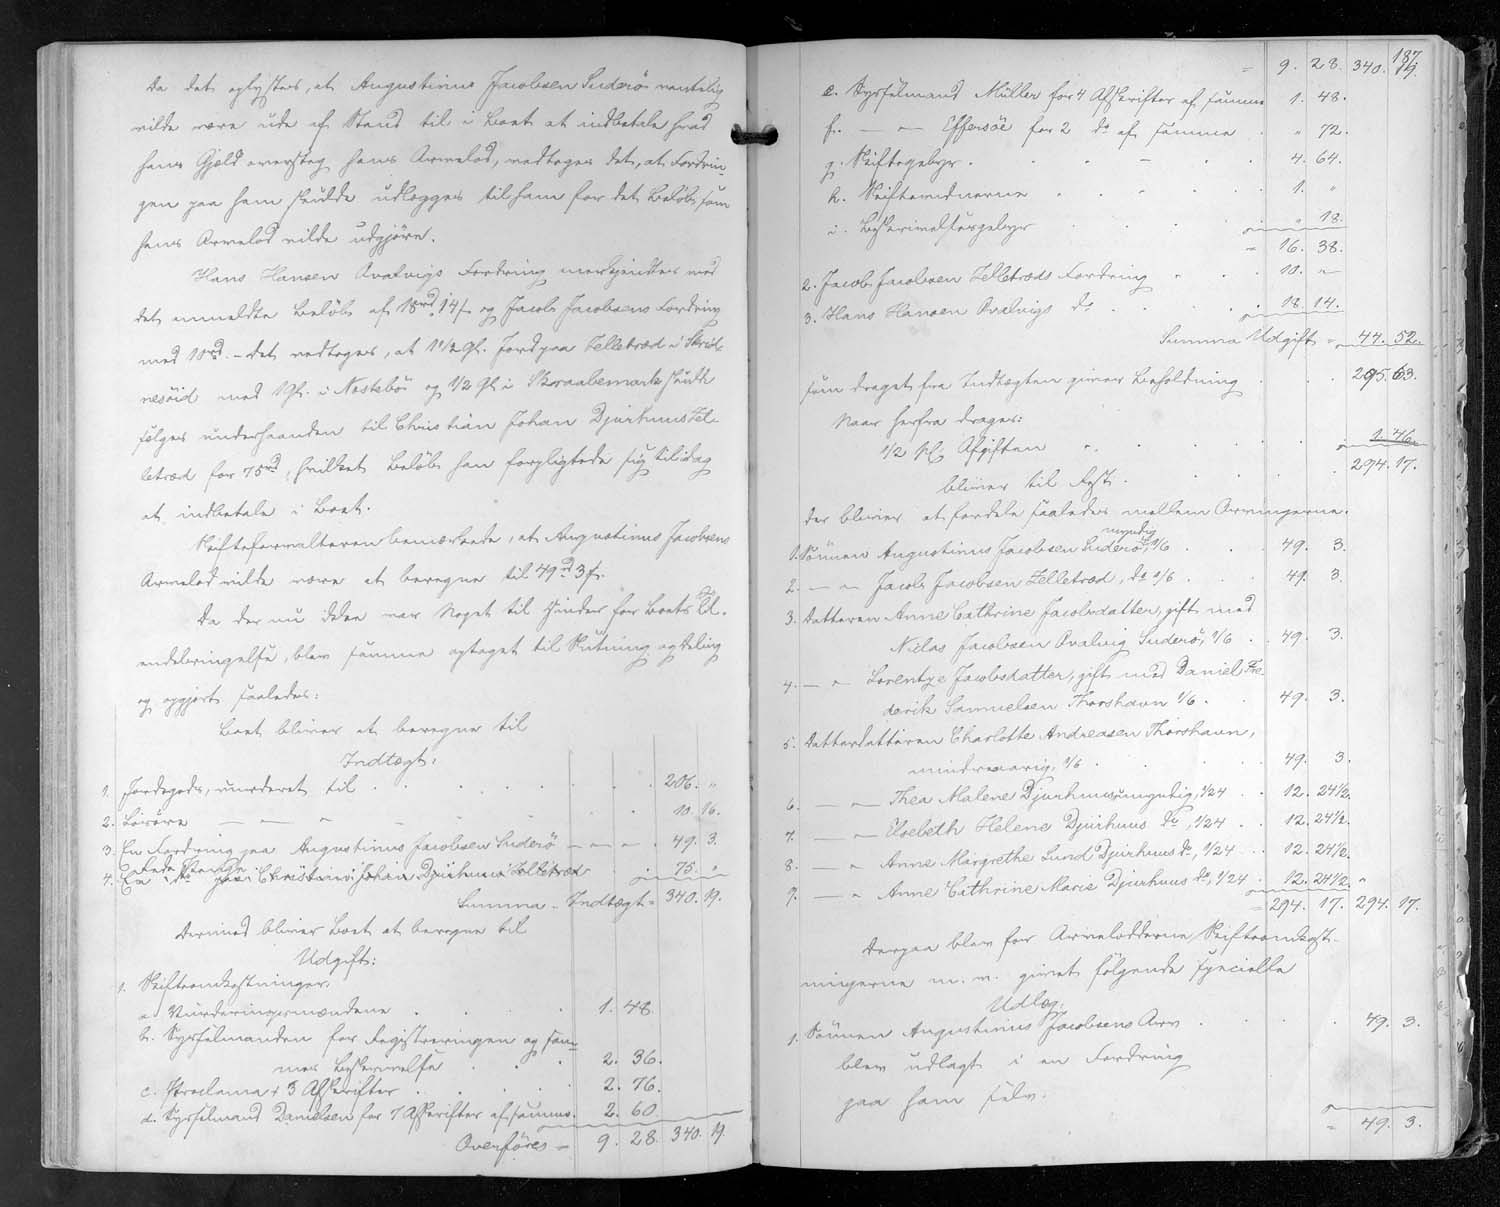 Da det oplystes, at Augustinus Jacobsen Suderö ventelig
vilde være ude af Stand til i Boet at indbetale hvad
hans Gjæld oversteg hans Arvelod, vedtoges det, at Fordrin-
gen paa ham skulde udlægges til ham for det Beløb, som
hans Arvelod vilde udgjöre.
Hans Hansen Qvalvigs Fordring anerkjendtes med
det anmeldte Beløb af 18rd 14/ og Jacob Jacobsens Fordring
med 10rd. - Det vedtoges, at 1 1/2 Gl. Jord paa Zelletræd i
med 1 Gl. i Nestebö og 1/2 Gl i Skraabemark skulde
sælges underhaanden til Christian Johan Djurhuus Zel-
letræd for 75rd, hvilket Beløb han forpligtede sig til idag
at indbetale i Boet.
Skifteforvalteren bemærkede, at Augustinus Jacobsens
Arvelod vilde være at beregne til 49rd 3/.
Da der nu ikke var Noget til Hinder for Boets Til-
endebringelse, blev samme optaget til Slutning og Deling
og opgjort saaledes:
Boet bliver at beregne til
Indtægt:
1. Jordegods, vurderet til . . . 206. "
2. Lösöre — — " 10. 16.
3. En Fordring paa Augustinus Jacobsen Suderö — " — 49. 3.
4. En do paa Christian Johan Djurhuus Zelletræd 75. "
Summa Indtægt = 340. 19.
Derimod bliver Boet at beregne til
Udgift:
1. Skifteomkostninger:
a. Vurderingsmændene . . . 1. 48.
b. Sysselmanden for Registreringen og sam-
mes Beskrivelse . . . 2. 36.
c. Proclama & 3 Afskrifter . . 2. 76.
d. Sysselmand Danielsen for 7 Afskrifter af samme. 2. 60.
Overføres = 9. 28. 340. 19.
187
= 9. 28. 340. 19.
e. Sysselmand Müller for 4 Afskrifter af samme 1. 48.
f. — " Effersöe for 2 do af samme . " 72.
g. Skiftegebyr . . . 4. 64.
h. Skiftevidnerne . . . 1. "
i. Beskrivelsesgebyr . . . " 18.
= 16. 38.
2. Jacob Jacobsen Zelletræds Fordring . . 10. "
3. Hans Hansen Qvalvigs do . . . 18. 14.
Summa Udgift = 44. 52.
som draget fra Indtægten giver Beholdning . . . 295. 63.
Naar herfra drages:
1/2 pCt Afgiften . . . 1. 46.
bliver til Rest . . . 294. 17.
der bliver at fordele saaledes mellem Arvingerne.
1. Sönnen Augustinus Jacobsen Suderö, myndig 1/6 . . . 49. 3.
2. — " Jacob Jacobsen Zelletræd, do 1/6 . . . 49. 3.
3. Datteren Anne Cathrine Jacobsdatter, gift med
Niclas Jacobsen Qvalvig Suderö, 1/6 . . 49. 3.
4. — " Lorentze Jacobsdatter, gift med Daniel Fre-
derik Samuelsen Thorshavn 1/6 . . 49. 3.
5. Datterdatteren Charlotte Andreasen Thorshavn,
mindreaarig, 1/6 . . . 49. 3.
6. — " — Thea Malene Djurhuus umyndig, 1/24 . . 12. 24 1/2.
7. — " — Elsebeth Helene Djurhuus do, 1/24 . . 12. 24 1/2.
8. — " Anne Margrethe Lund Djurhuus do, 1/24 . . 12. 24 1/2.
9. — " Anne Cathrine Marie Djurhuus do, 1/24 . 12. 24 1/2. "
= 294. 17. 294. 17.
Derpaa blev for Arvelodderne Skifteomkost-
ningerne m. v. givet følgende specielle
Udlæg.
1. Sönnen Augustinus Jacobsens Arv . . . 49. 3.
blev udlagt i en Fordring
paa ham selv.
= 49. 3.